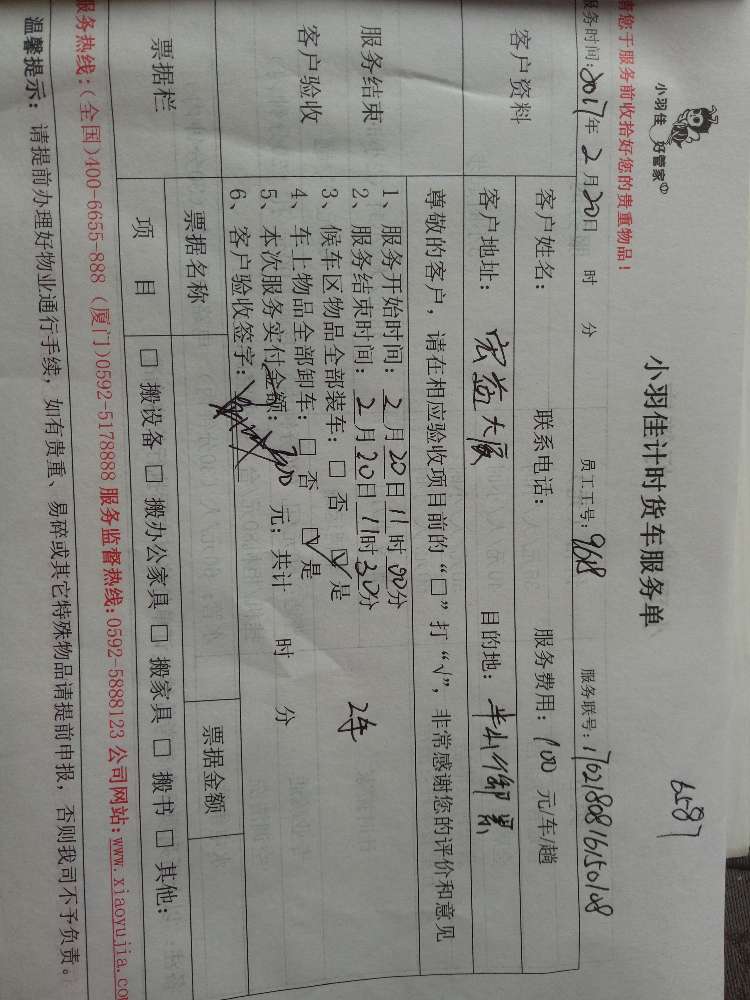 6587
小羽佳 好管家
小羽佳计时货车服务单
请您于服务前收拾好您的贵重物品！
服务时间：2017年 2 月 20日 时 分 员工工号：9618 服务联号：1702180816150108
客户资料
客户姓名： 联系电话： 服务费用：100 元/车/趟
客户地址：宏益大厦 目的地：半山御景
尊敬的客户，请在相应验收项目前的“□”打“√”，非常感谢您的评价和意见
服务结束
客户验收
1、服务开始时间：2 月 20 日 11 时 00 分
2、服务结束时间：2 月 20 日 11 时 30 分
3、候车区物品全部装车：□ 否 ☑ 是
4、车上物品全部卸车：□ 否 ☑ 是
5、本次服务实付金额： 元；共计 时 分
6、客户验收签字：
票据栏
票据名称 票据金额
项 目 □ 搬设备 □ 搬办公家具 □ 搬家具 □ 搬书 □ 其他：
服务热线：(全国)400-6655-888 (厦门)0592-5178888 服务监督热线：0592-5888123 公司网站：www.xiaoyujia.co
温馨提示：请提前办理好物业通行手续，如有贵重、易碎或其它特殊物品请提前申报，否则我司不予负责。